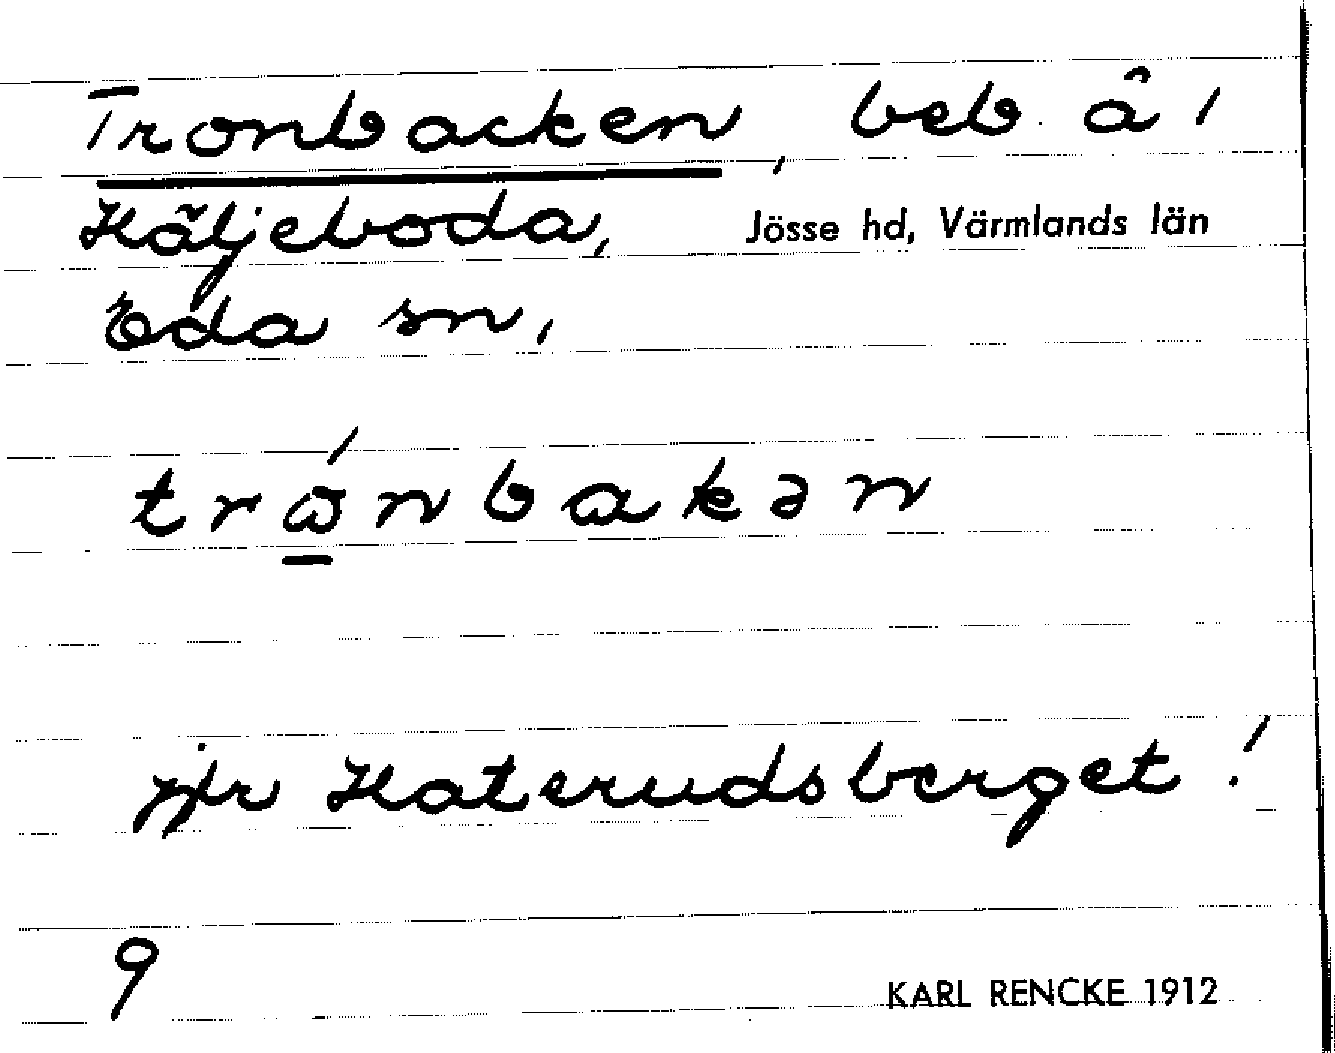 Tronbacken, beb. å 1
Häljeboda, Jösse hd, Värmlands län
Eda sn,
trånbakən
jfr Haterudsberget!
9
KARL RENCKE 1912